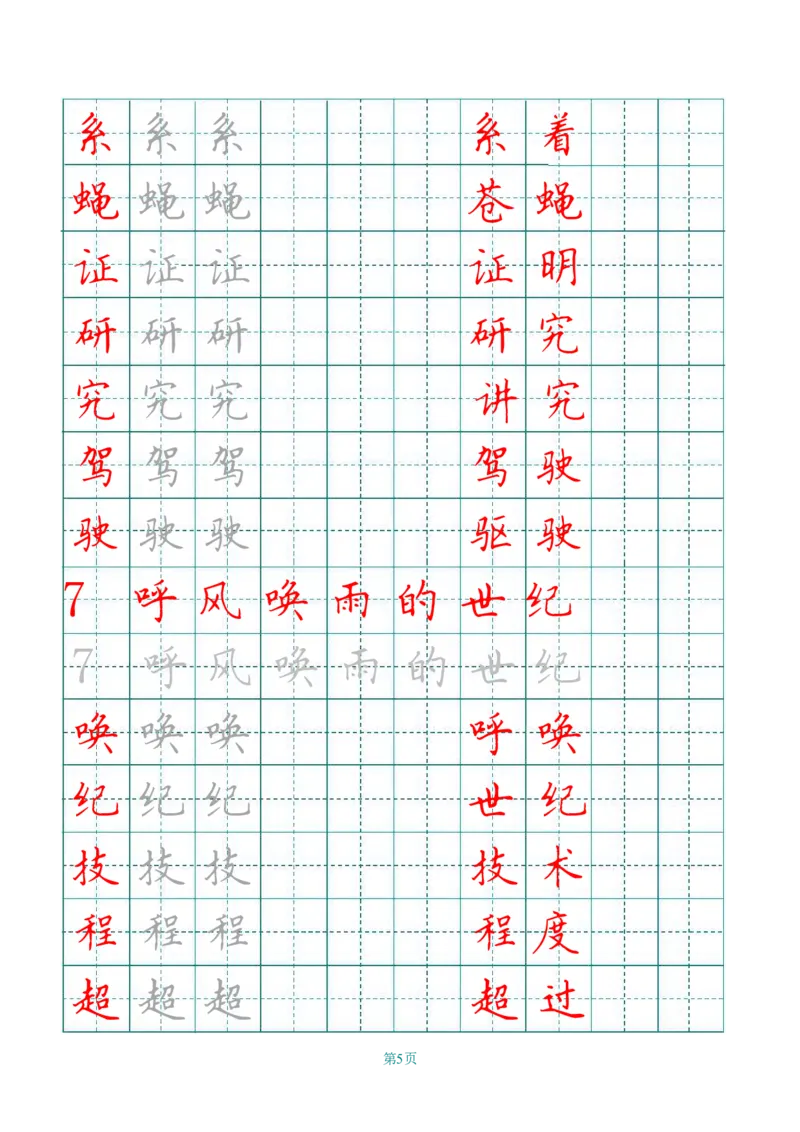 系 系 系 系 着
蝇 蝇 蝇 苍 蝇
证 证 证 证 明
研 研 研 研 究
究 究 究 讲 究
驾 驾 驾 驾 驶
驶 驶 驶 驱 驶
7 呼 风 唤 雨 的 世 纪
7 呼 风 唤 雨 的 世 纪
唤 唤 唤 呼 唤
纪 纪 纪 世 纪
技 技 技 技 术
程 程 程 程 度
超 超 超 超 过
第5页